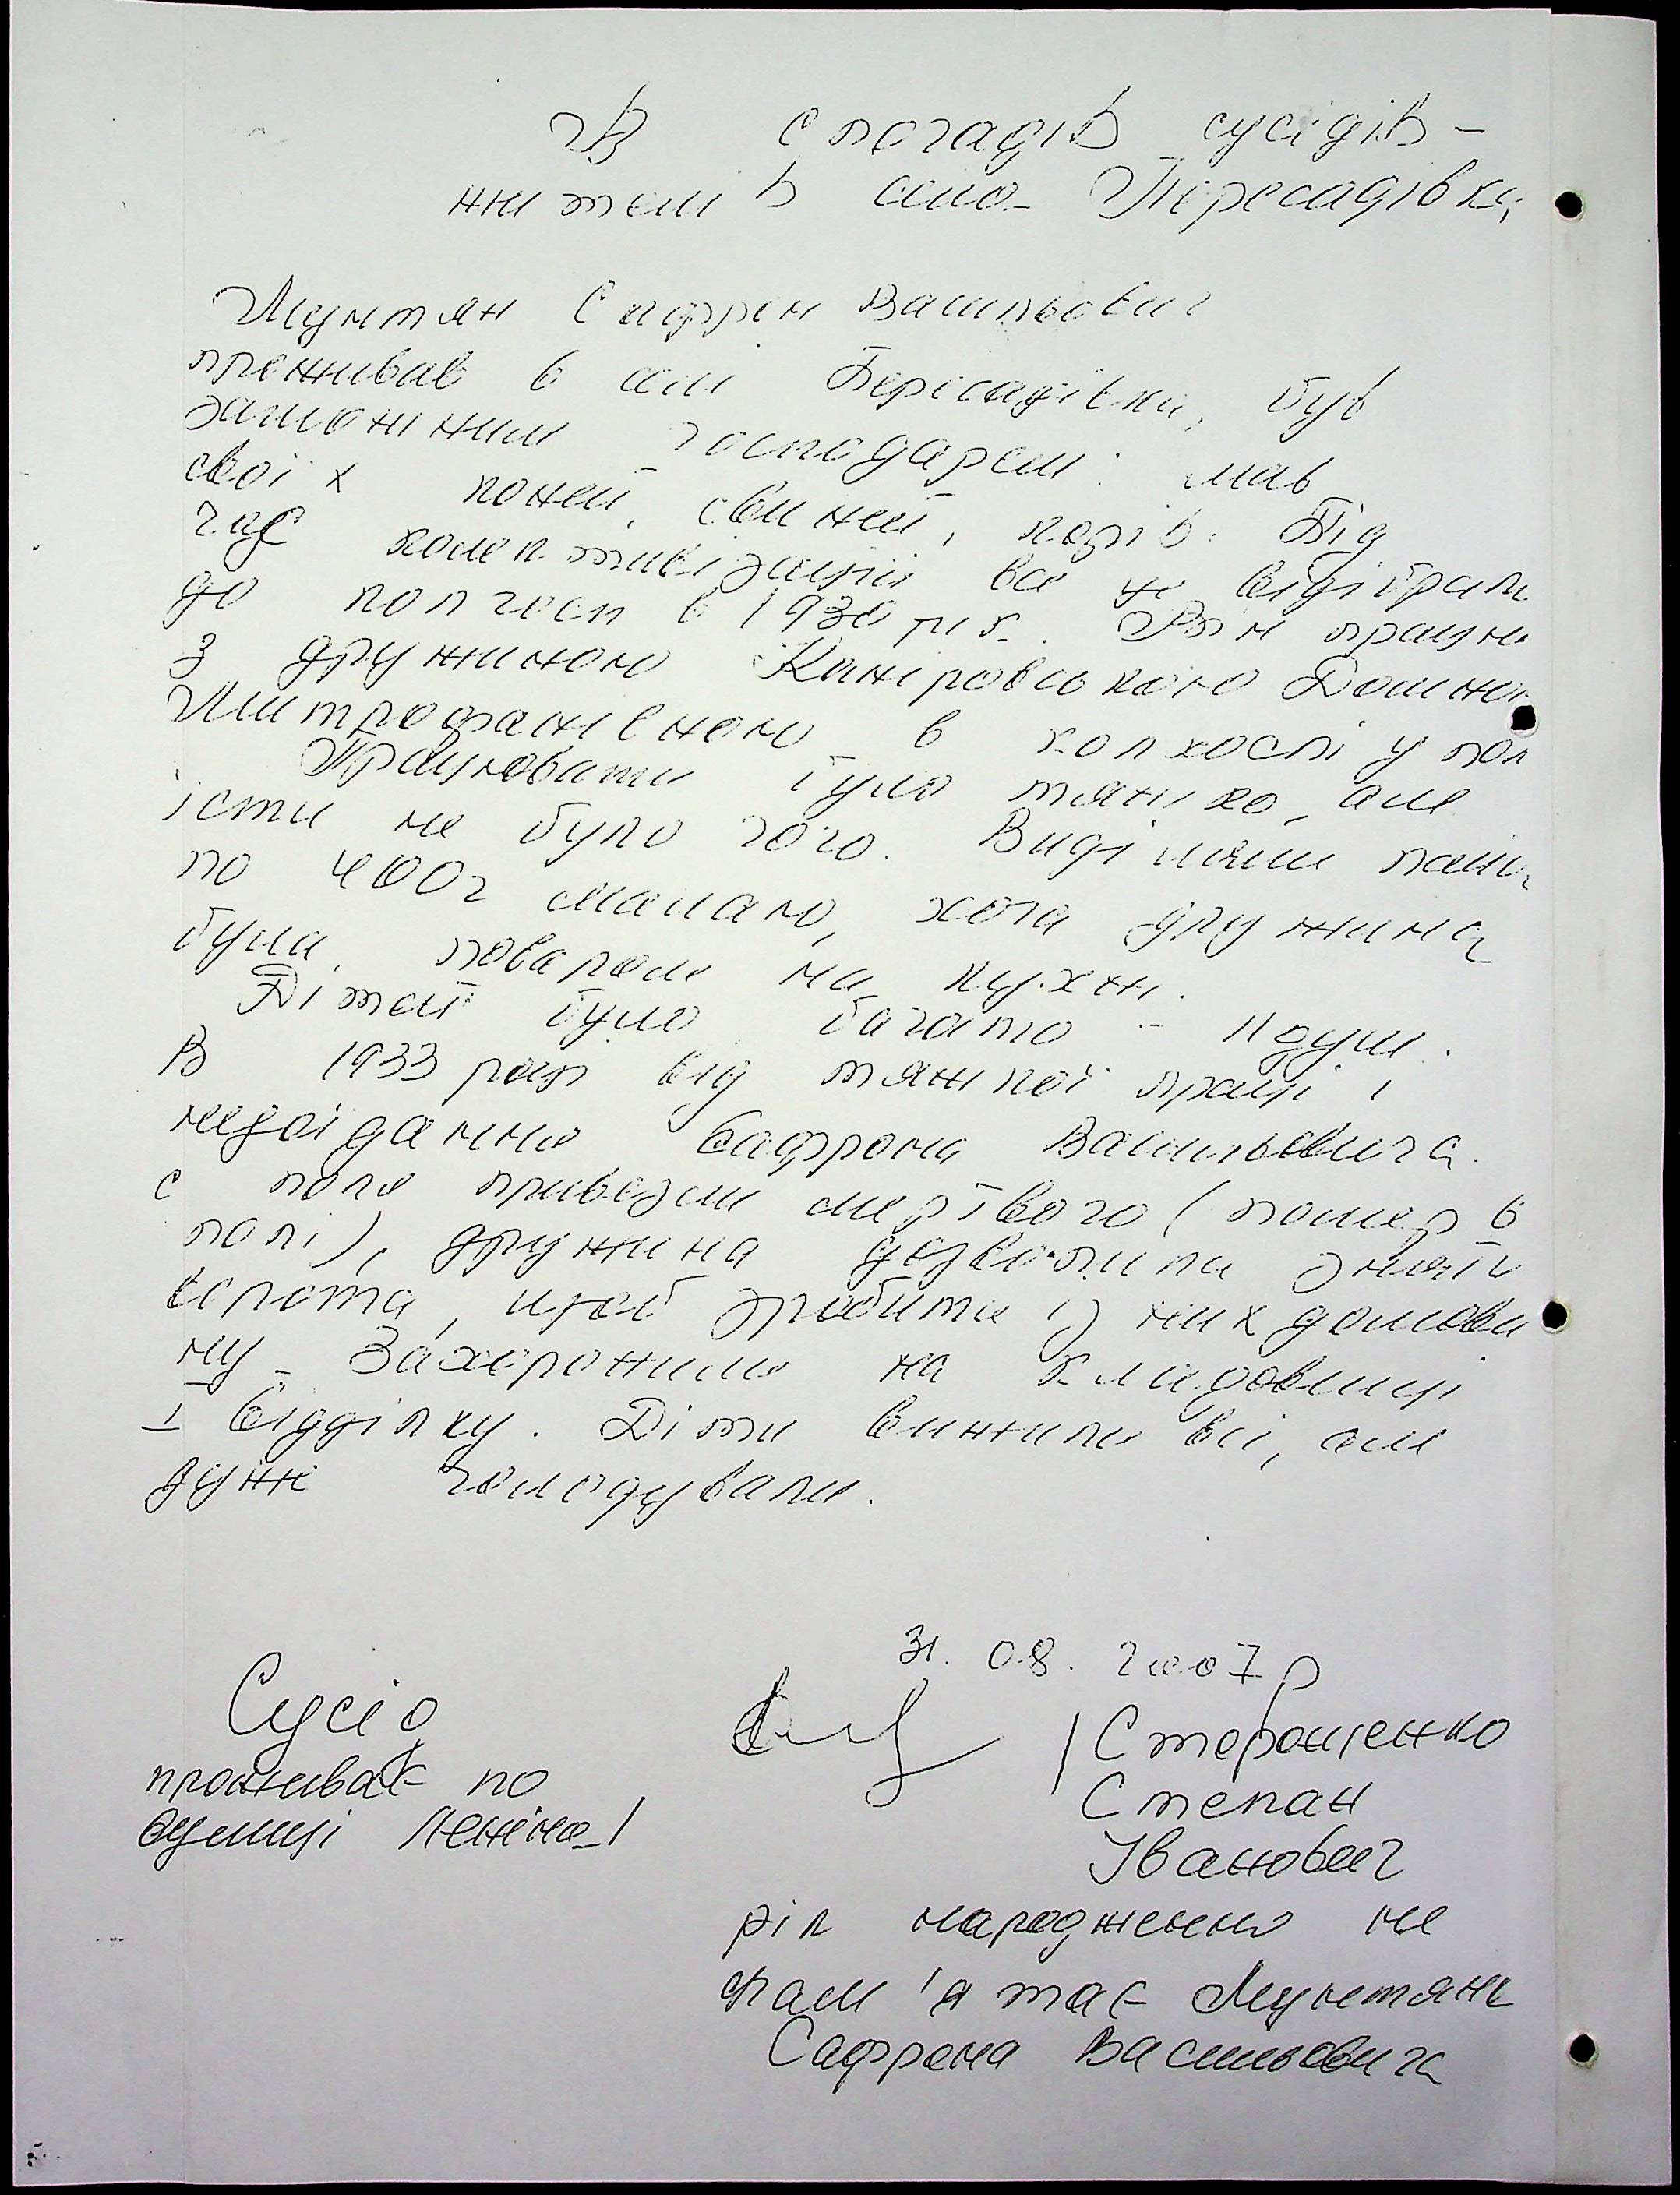 Із спогадів сусідів -
жителів села Пересадівка
Мунтян Сафрон Васильович
проживав в селі Пересадівка, був
заможним господарем: мав
своїх коней, свиней, козів. Під
час колективізації все це відібрали
до колгосп в 1930 рік. Він працював
з дружиною Доминою
Митрофанівною в колхоспі у полі
Працювати було тяжко, але
їсти не було чого. Виділяли пайок
по 400г макаю, хоча дружина
була поваром на кухні.
Дітей було багато - 11 душ.
В 1933 році від тяжкої праці і
недоїдання Сафрона Васильовича
с поля привезли мертвого (помер в
полі), дружина дозволила зняти
ворота, щоб зробити із них домови
ну. Захоронили на кладовищі
І відділку. Діти вижили всі, але
дуже голодували.
31.08.2007р
Сусід /Сторошенко
проживає по Степан
вулиці Леніна 1 Іванович
рік народження не
пам'ятає Мунтяна
Сафрона Васильовича